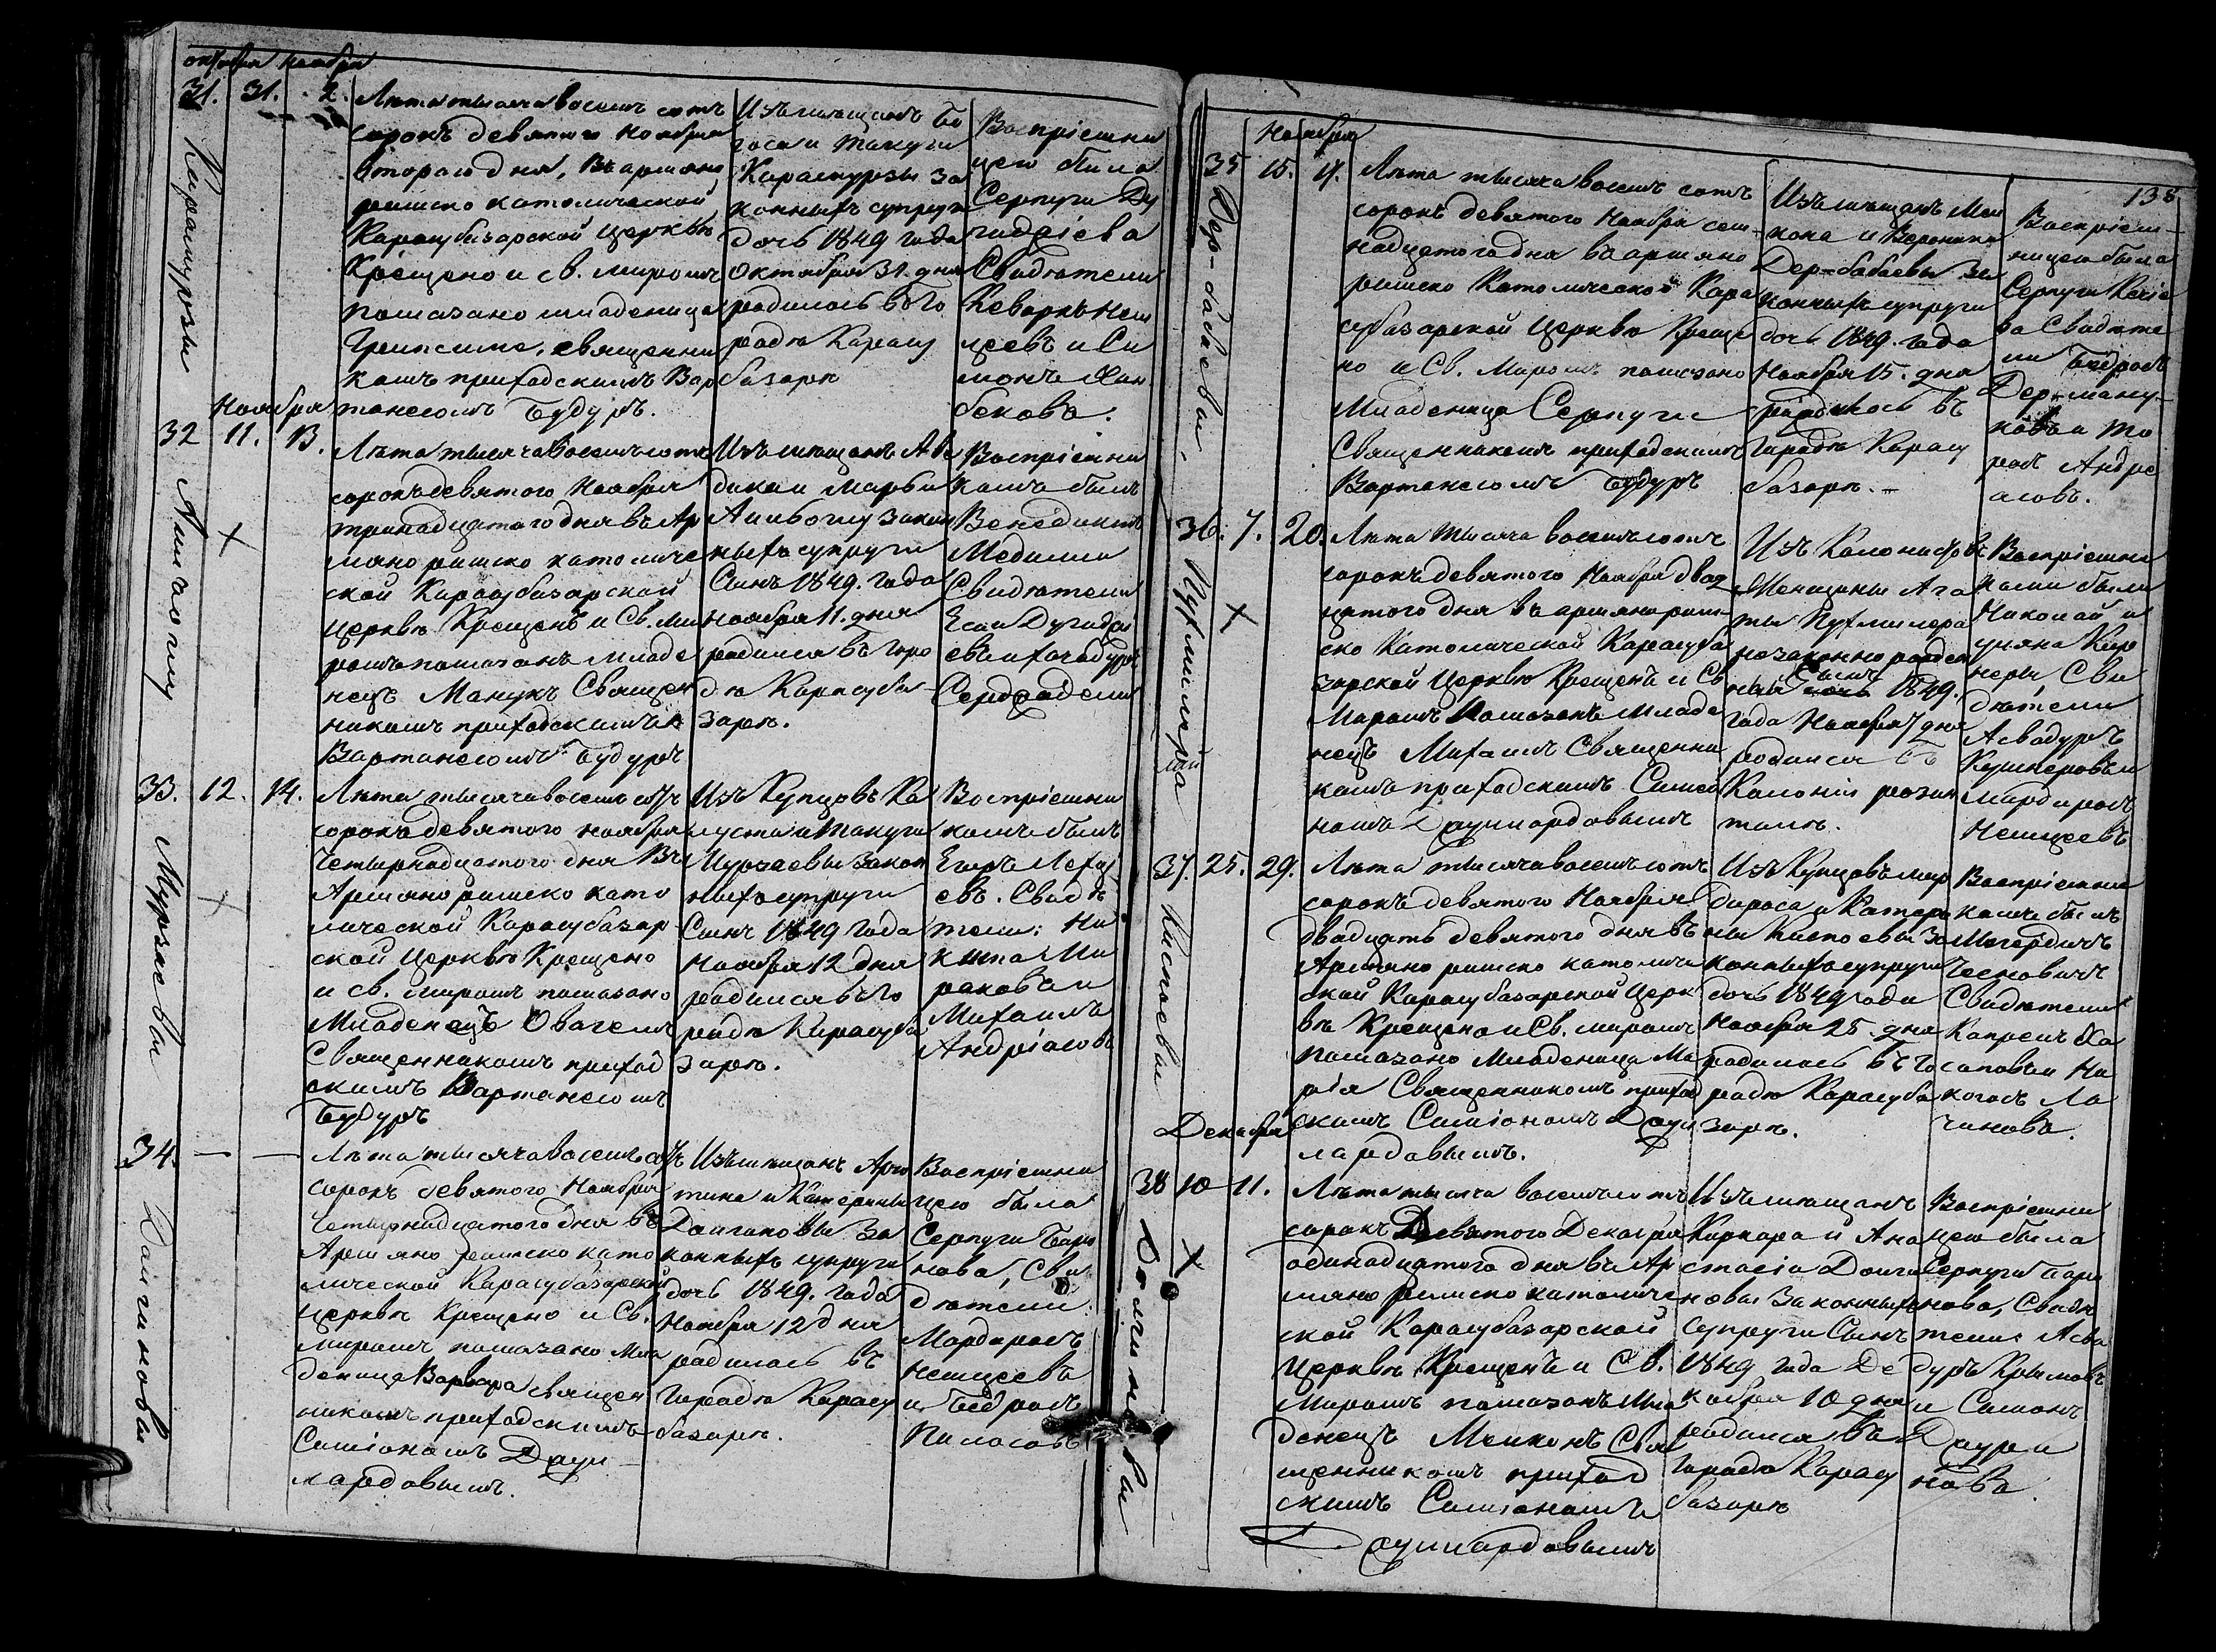 октября ноября
31. 31. 2.
Карамурзы
Лѣта тысяча восемь сотъ
сорокъ девятого Ноября
второго дня, въ армяно
римско католической
Карасубазарской Церквѣ
Крещено и св. миромъ
помазано младеница
Грипсиме, священни
комъ приходскимъ Вар
танесомъ Будуръ.
Изъ мѣщанъ Бо
госа и Такуги
Карамурзы за
конныхъ супруги
дочь 1849 года
Октября 31. дня
родилась въ го
родѣ Карасу
базарѣ
Воспріемни
цею была
Серпуги Ду
гидзіева
Свидѣтели
Кеваркъ Нем
цевъ и Си
монъ Хан
бековъ.
Ноября
32 11. 13.
Лѣта тысяча восемь сотъ
сорокъ девятого Ноября
тринадцатого дня въ Ар
мяно римско католиче
ской Карасубазарской
Церквѣ Крещенъ и Св. Ми
ромъ помазанъ младе
нецъ Манукъ Священ
никомъ приходскимъ
Вартанесомъ Будуръ
Изъ мѣщанъ Аве
дика и Марьи
законныхъ супруги
Сынъ 1849. Года
Ноября 11. дня
родился въ горо
дѣ Карасуба
зарѣ.
Воспріемни
комъ былъ
Венедиктъ
Свидѣтели
Есаи Дугидзі
евъ и Хачадуръ
33. 12. 14.
Мурзаевы
Лѣта тысяча восемь сотъ
сорокъ девятого ноября
Четырнадцатого дня Въ
Армяно римско като
лической Карасубазар
ской Церквѣ Крещено
и св. миромъ помазано
Младенецъ Ованесъ
Священникомъ приход
скимъ Вартанесомъ
Будуръ
Изъ Купцовъ Ка
луста и Такуги
Мурзаевы закон
ныхъ супруги
Сынъ 1849 года
Ноября 12 дня
родился въ го
родѣ Карасуба
зарѣ.
Воспріемни
комъ былъ
Егоръ
евъ. Свидѣ
тели: Ни
кита Ми
раковъ и
Михаилъ
Андріасовъ
34. — —
Долгиновы
Лѣта тысяча восемь сотъ
сорокъ девятого Ноября
Четырнадцатого дня въ
Армяно римско като
лической Карасубазарской
Церквѣ Крещено и Св.
миромъ помазано Мла
деница Варвара священ
никомъ приходскимъ
Симіономъ Даул
лардовымъ.
Изъ мѣщанъ Арю
тина и Катерины
Долгиновы за
конныхъ супруги
дочь 1849. года
Ноября 12 дня
родилась въ
городѣ Карасу
базарѣ.
Воспріемни
цею была
Серпуги Баро
нова, Сви
дѣтели:
Мардиросъ
Немцевъ
и Бедросъ
Пиласовъ
138
Ноября
35 15. 17.
Дер-бабаевы.
Лѣта тысяча восемь сотъ
сорокъ девятого Ноября сем-
надцатого дня въ армяно
римско Католической Кара
субазарской Церквѣ Креще
но и Св. Миромъ помазано
Младеница Серпуги
Священникомъ приходскимъ
Вартанесомъ Будуръ
Изъ мѣщанъ Мел
кона и Вероники
Дер-бабаевы за
конныхъ супруги
дочь 1849. года
Ноября 15. дня
родилась въ
городѣ Карасу
базарѣ. —
Воспріем-
ницею была
Серпуги
ва Свидѣте
ли Бедросъ
Дер-ману
ковъ и То
росъ Андре
асовъ.
36. 7. 20.
Пухмилера
Лѣта тысяча восемь сотъ
сорокъ девятого Ноября двад
цатого дня въ армяно рим
ско Католической Карасуба
зарской Церквѣ Крещенъ и Св
Миромъ Помазанъ Младе
нецъ Михаилъ Священни
комъ приходскимъ Симео
номъ Даулмардовымъ
Изъ Колонистовъ
Женщины Ага
ты Пухмилера
незаконно рожден
ный сынъ 1849.
года Ноября 7 дня
родился въ
Колоніи розен
талъ.
Воспріемни
ками были
Николай и
Свидѣтели
Асвадуръ
Кушнеровъ и
Мардиросъ
Немцевъ
37. 25. 29.
Киспоевы
Лѣта тысяча восемь сотъ
сорокъ девятого Ноября
двадцать девятого дня въ
Армяно римско католиче
ской Карасубазарской Церк
вѣ Крещена и Св. миромъ
помазано Младеница Ма
рія Священникомъ приход
скимъ Симіономъ Даул
лардовымъ.
Изъ Купцовъ мар
дироса и Катери
ны Киспоевы За
конныхъ супруги
дочь 1849 года
Ноября 25. дня
родилась въ го
родѣ Карасуба
зарѣ.
Воспріемни
комъ былъ
Мегердичъ
Чесновичъ
Свидѣтели
Капрелъ Ха
саповъ и Ни
когосъ Ла
чиновъ.
Декабря
38 10 11.
Долгиновы
Лѣта тысяча восемь сотъ
сорокъ Девятого Декабря
одинадцатого дня въ Ар
мяно римско католиче
ской Карасубазарской
Церквѣ Крещенъ и Св.
Миромъ помазанъ Мла
денецъ Мелконъ Свя
щенникомъ приход
скимъ Симіономъ
Даулмардовымъ
Изъ мѣщанъ
Киркора и Ана
стасіи Долги
новы Законныхъ
супруги Сынъ
1849 года Де
кабря 10 дня
родился въ
городѣ Карасу
базарѣ
Воспріемни
цею была
Серпуги Баро
нова, Свидѣ
тели: Асва
дуръ Крымовъ
и Симонъ
Даури
новъ.